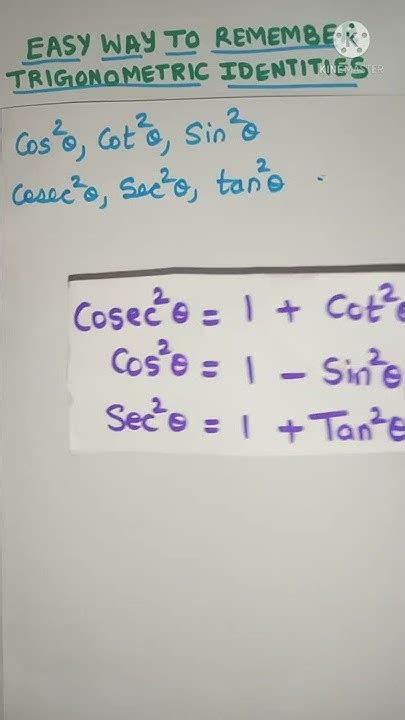 EASY WAY TO REMEMBER
KINEMASTER
TRIGONOMETRIC IDENTITIES
Cos²θ, Cot²θ, Sin²θ
Cosec²θ, Sec²θ, tan²θ
Cosec²θ = 1 + Cot²θ
Cos²θ = 1 - Sin²θ
Sec²θ = 1 + Tan²θ